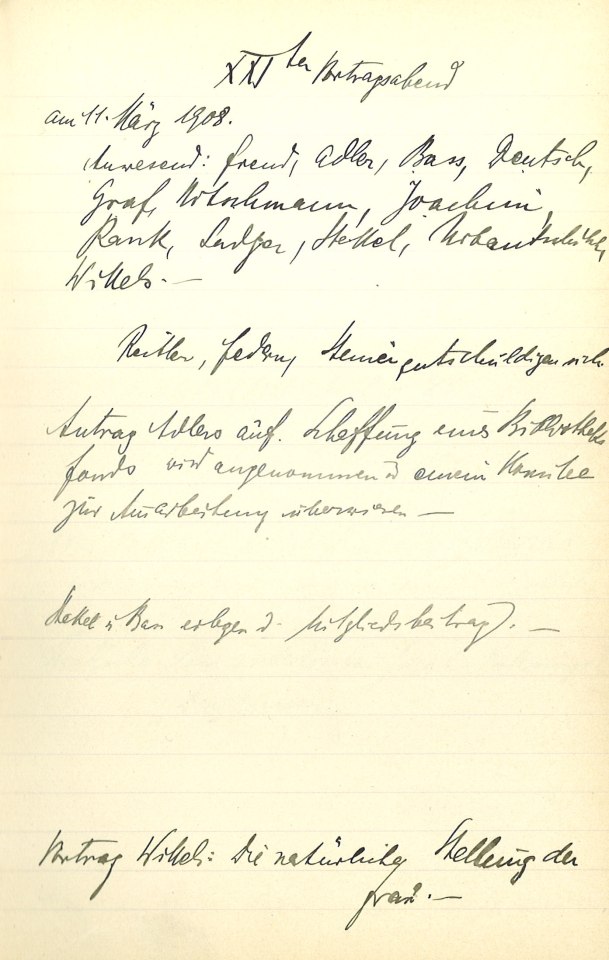 XXIter Vortragsabend
am 11. März 1908.
Anwesend: Freud, Adler, Bass, Deutsch,
Graf, Hitschmann, Joachim,
Rank, Sadger, Stekel, Urbantschitsch,
Wittels. —
Reitler, Federn, Steiner entschuldigen sich.
Antrag Adlers auf Schaffung eines Bibliotheks
fonds wird angenommen u einem Komitee
zur Ausarbeitung überwiesen —
Stekel u Bass erlegen d. Mitgliedsbeitrag. —
Vortrag Wittels: Die natürliche Stellung der
Frau. —